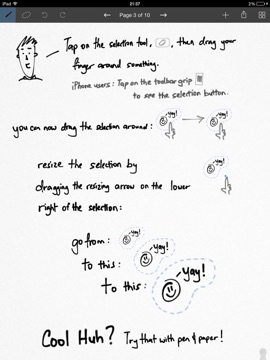 iPad
21:37
Page 3 of 10
Tap on the selection tool, , then drag your
finger around something.
iPhone users: Tap on the toolbar grip
to see the selection button.
yay! yay!
you can now drag the selection around:
resize the selection by
yay!
dragging the resizing arrow on the lower
right of the selection:
go from: yay!
to this: yay!
to this: yay!
Cool Huh? Try that with pen & paper!